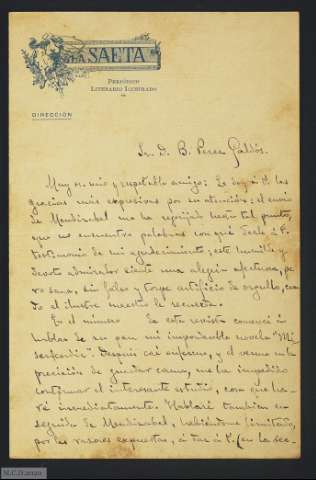 LA SAETA
PERIÓDICO
LITERARIO ILUSTRADO
DIRECCIÓN
Sr. D. B. Perez Galdós.
Muy sr. mio y respetable amigo: Le doy á V. las
gracias más expresivas por su atención; el envio
de Mendizabal me ha regocijado hasta tal punto,
que no encuentro palabras con qué darle á V.
testimonio de mi agradecimiento; este humilde y
devoto admirador siente una alegria afectuosa, pe
ro sana, sin falso y torpe artificio de orgullo, cuan
do el ilustre maestro le recuerta.
En el número de esta revista comencé á
hablar de su gran mi improbable novela "Mi
sericordia". Después caí enfermo, y el verme en la
precisión de guardar cama, me ha impedido
continuar el interesante estudio, cosa que ha-
ré inmediatamente. Hablaré tambien en
seguida de Mendizabal, habiéndome limitado,
por las razones expuestas, á dar á V. (en la sec-
N.C.D. 20120